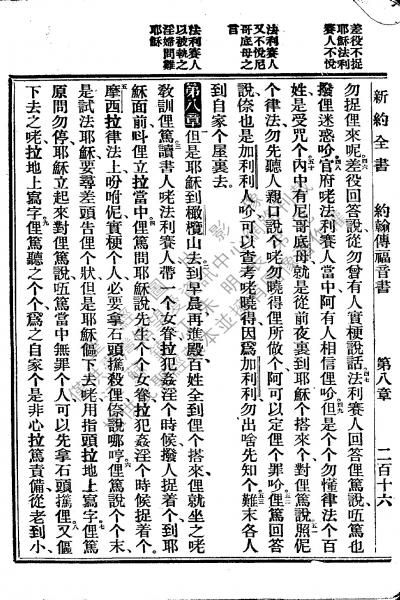 差役不捉
耶穌法利
賽人不悅
法利賽人
又不悅尼
哥底母之
言
法利賽人
以被執之
淫婦問難
耶穌
新約全書 約翰傳福音書 第八章 二百十六
勿捉俚來呢差役回答說從勿曾有人實梗說話法利賽人回答俚篤說㑚篤也
撥俚迷惑吤官府咾法利賽人當中阿有人相信俚吤但是个个勿懂律法个百
姓是受咒个內中有尼哥底母就是從前夜裏到耶穌个搭來个對俚篤說照伲
个律法勿先聽人親口說个咾勿曉得俚所做个阿可以定俚个罪吤俚篤回答
說倷也是加利利人吤可以查考咾曉得因爲加利利勿出啥先知个難末各人
到自家个屋裏去
第八章 但是耶穌到橄欖山去到早晨再進殿百姓全到俚个搭來俚就坐之咾
敎訓俚篤讀書人咾法利賽人帶一个女眷拉犯姦淫个時候撥人捉着个到耶
穌面前叫俚立拉當中俚篤問耶穌說先生个个女眷拉犯姦淫个時候捉着个
摩西拉律法上吩咐伲實梗个人必要拿石頭攂殺俚倷說哪哼俚篤說个个末
是試法耶穌要尋差頭告俚个狀但是耶穌傴下去咾用指頭拉地上寫字俚篤
原問勿停耶穌立起來對俚篤說㑚篤當中無罪个人可以先拿石頭攂俚又傴
下去之咾拉地上寫字俚篤聽之个个爲之自家个是非心拉篤責備從老到小